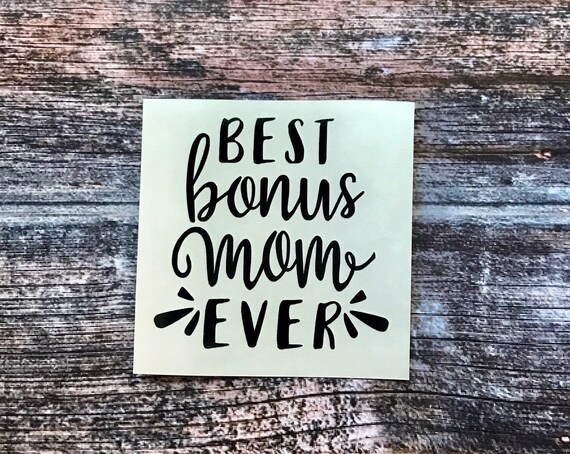 BEST
bonus
mom
EVER